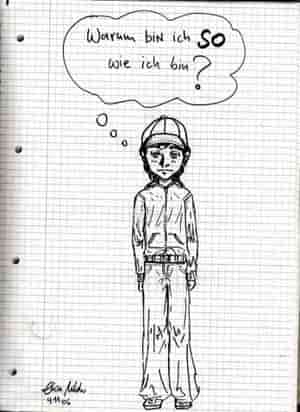 Warum bin ich SO
wie ich bin?